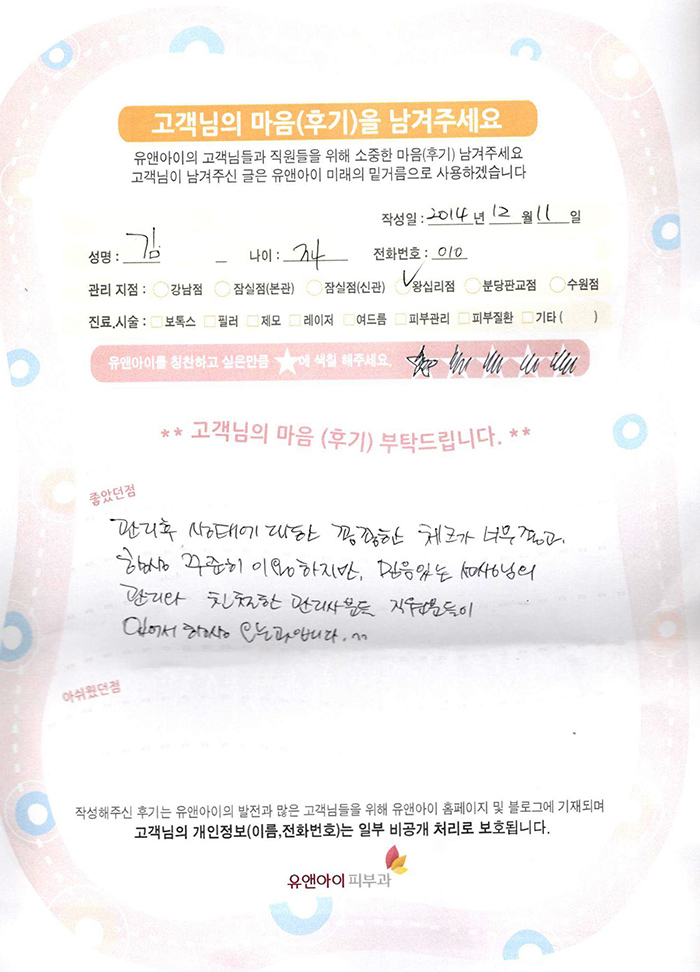 고객님의 마음(후기)을 남겨주세요
유앤아이의 고객님들과 직원들을 위해 소중한 마음(후기) 남겨주세요
고객님이 남겨주신 글은 유앤아이 미래의 밑거름으로 사용하겠습니다
작성일 : 2014 년 12 월 11 일
성명 : 김 나이 : 전화번호 : 010
관리 지점 : 강남점 잠실점(본관) 잠실점(신관) 왕십리점 분당판교점 수원점
진료,시술 : 보톡스 필러 제모 레이저 여드름 피부관리 피부질환 기타 ( )
유앤아이를 칭찬하고 싶은만큼 ★에 색칠 해주세요.
** 고객님의 마음 (후기) 부탁드립니다. **
좋았던점
관리후 상태에 대한 꼼꼼한 체크가 너무 좋고,
항상 꾸준히 이용하지만, 믿음있는 선생님의
관리와 친절한 관리사분들 직원분들이
있어서 항상 오는곳입니다. ^^
아쉬웠던점
작성해주신 후기는 유앤아이의 발전과 많은 고객님들을 위해 유앤아이 홈페이지 및 블로그에 기재되며
고객님의 개인정보(이름,전화번호)는 일부 비공개 처리로 보호됩니다.
유앤아이 피부과